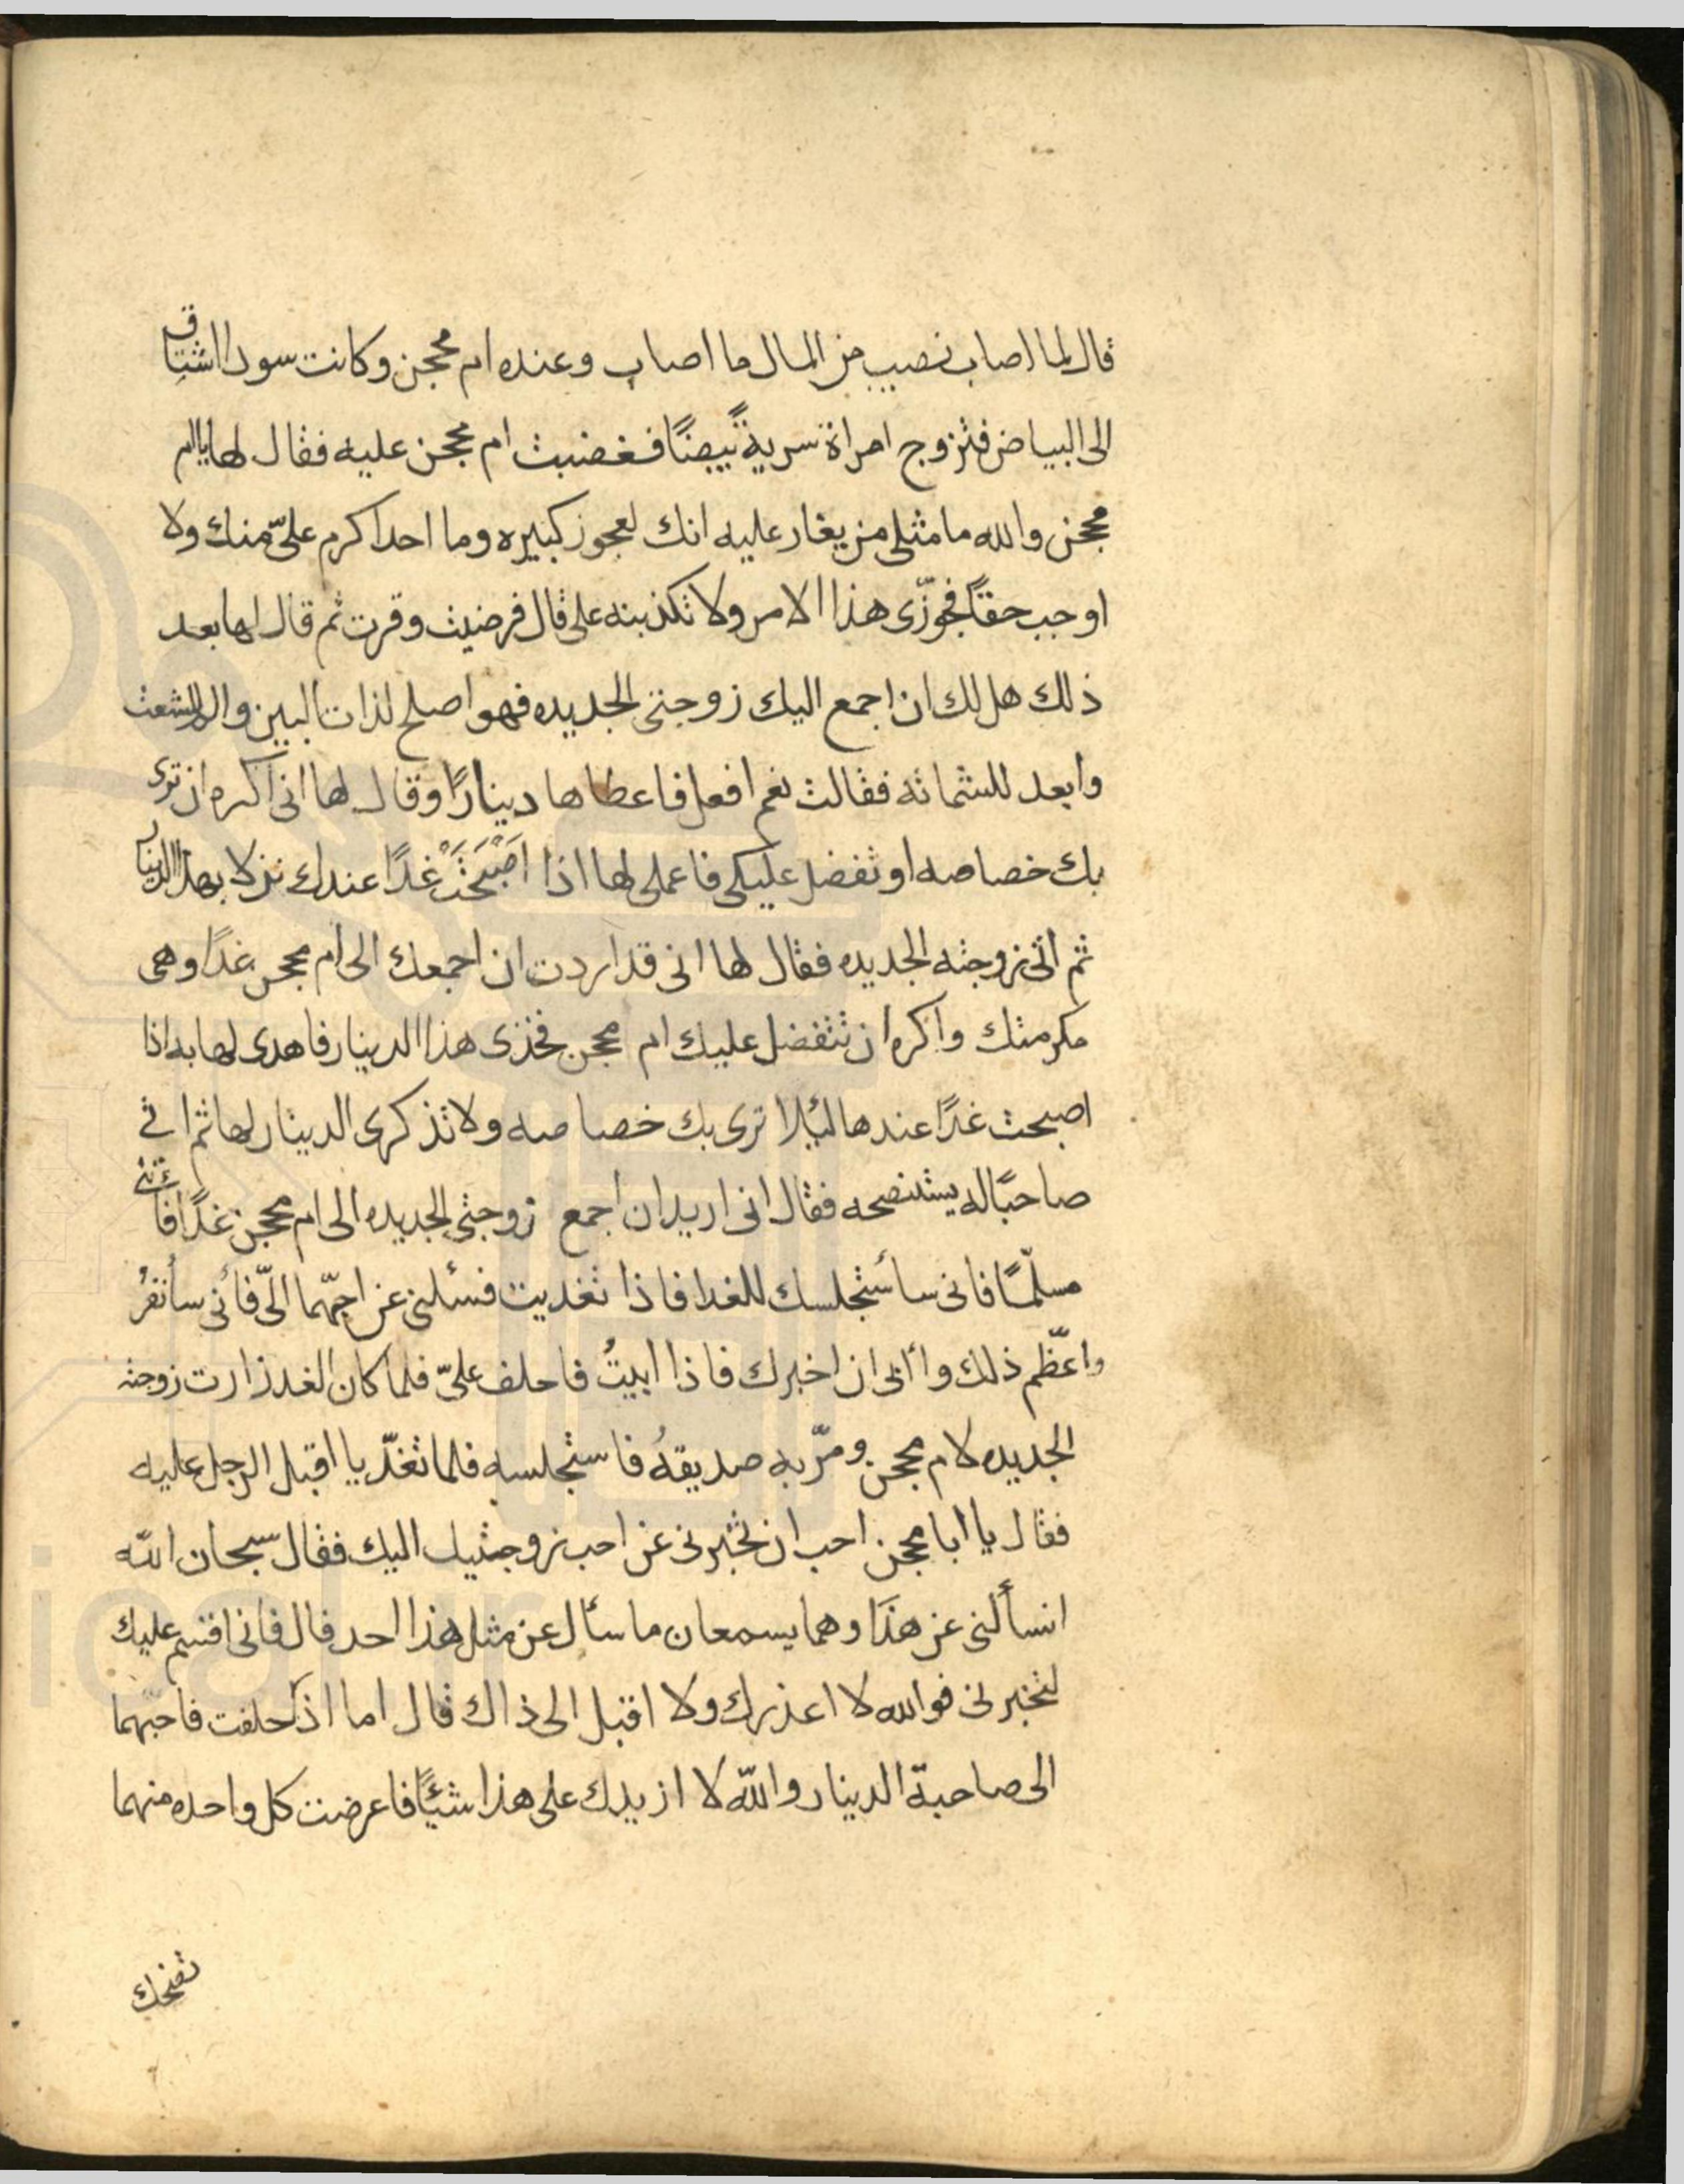 قال لما اصاب نصيب من المال ما اصاب وعنده ام محجن وكانت سودا اشتاق
الى البياض فتزوج امراة سرية بيضًا فغضبت ام محجن عليه فقال لها يا ام
محجن والله ما مثلى من يغار عليه انك لعجوز كبيره وما احد اكرم علىّ منك ولا
اوجب حقًا فجوّزى هذا الامر ولا تكذبنه على قال فرضيت وقرت ثم قال لها بعد
ذلك هل لك ان اجمع اليك زوجتى الجديده فهو اصلح لذات البين والم للشعث
وابعد للشماتة فقالت نعم افعل فاعطاها دينارًا وقال لها انى اكره ان ترى
بك خصاصه او تفضل عليكى فاعملى لها اذا اصْبَحَتْ غدًا عندك نزلا بهذا الدينار
ثم اتى زوجته الجديده فقال لها انى قد اردت ان اجمعك الى ام محجن غدًا وهى
مكرمتك واكره ان تتفضل عليك ام محجن فخذى هذا الدينار فاهدى لها به اذا
اصبحت غدًا عندها ليلا ترى بك خصاصه ولا تذكرى الدينار لها ثم اتى
صاحبًا له يستنصحه فقال انى اريد ان اجمع زوجتى الجديده الى ام محجن غدًا فأتنى
مسلّمًا فانى سأستجلسك للغدا فاذا تغديت فسئلنى عن احبّهما الىّ فأنى سأنفرُ
واعظّم ذلك وأابى ان اخبرك فاذا ابيتُ فاحلف علىّ فلما كان الغد زارت زوجته
الجديده لام محجن ومرّ به صديقهُ فاستجلسه فلما تغدّيا اقبل الرجل عليه
فقال يا ابا محجن احب ان تخبرنى عن احب زوجتيك اليك فقال سبحان الله
اتسألنى عن هذَا وهما يسمعان ما سأل عن مثل هذا احد قال فانى اقسم عليك
لتخبرنى فوالله لا اعذرك ولا اقبل الى ذاك قال اما اذ حلفت فاحبّهما
الى صاحبة الدينار والله لا ازيدك على هذا شيئًا فاعرضت كل واحده منهما
تضحك